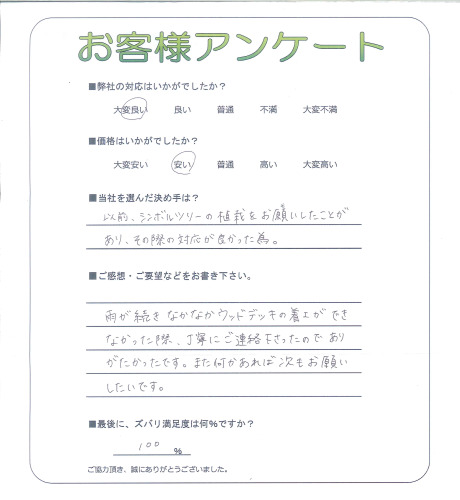 お客様アンケート
■弊社の対応はいかがでしたか？
大変良い 良い 普通 不満 大変不満
■価格はいかがでしたか？
大変安い 安い 普通 高い 大変高い
■当社を選んだ決め手は？
以前、シンボルツリーの植栽をお願いしたことが
あり、その際の対応が良かった為。
■ご感想・ご要望などをお書き下さい。
雨が続き なかなかウッドデッキの着工ができ
なかった際、丁寧にご連絡下さったので あり
がたかったです。また何かあれば次もお願い
したいです。
■最後に、ズバリ満足度は何%ですか？
100 %
ご協力頂き、誠にありがとうございました。